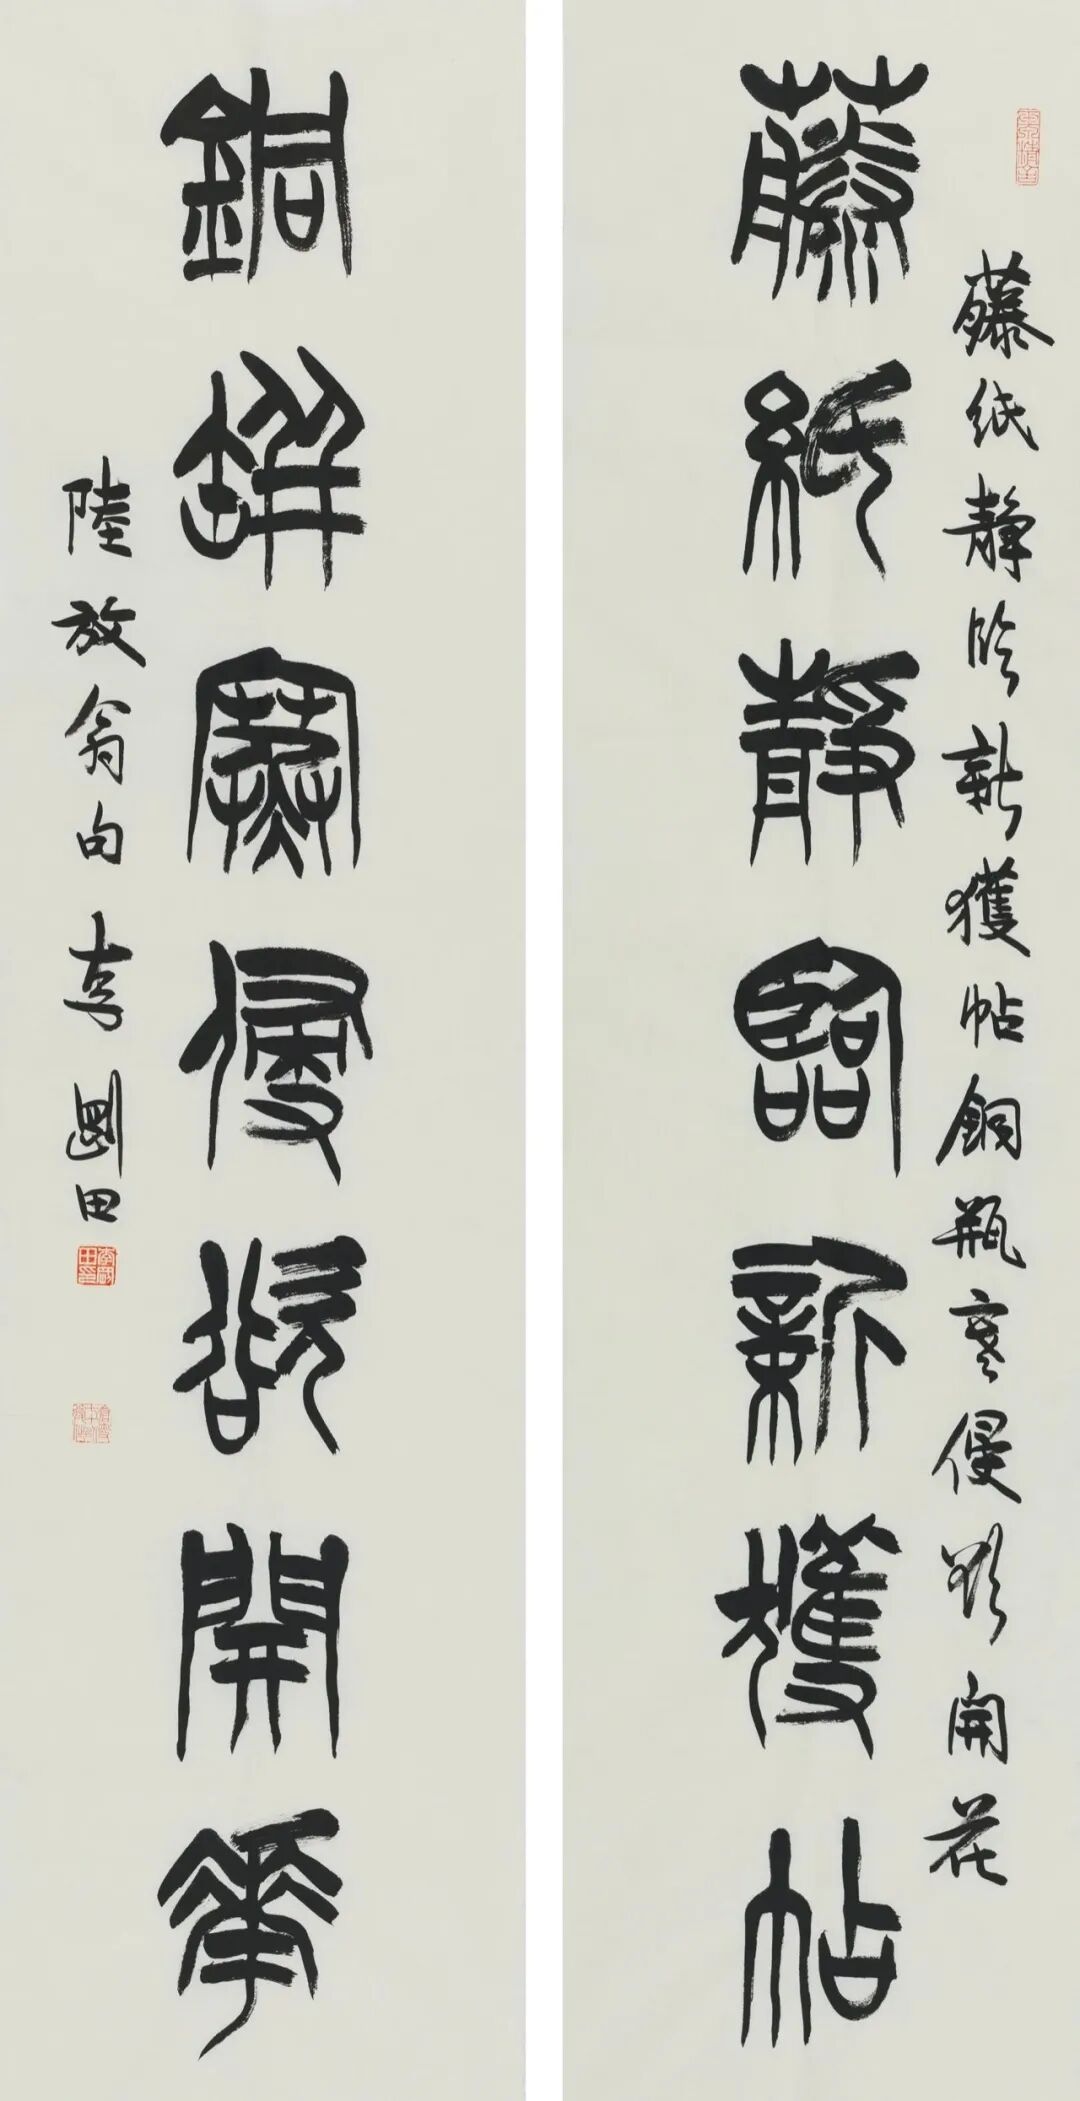 藤紙靜臨新獲帖
藤紙靜臨新獲帖銅瓶寒侵欲開花
銅缾寒侵欲開華
陸放翁句李剛田